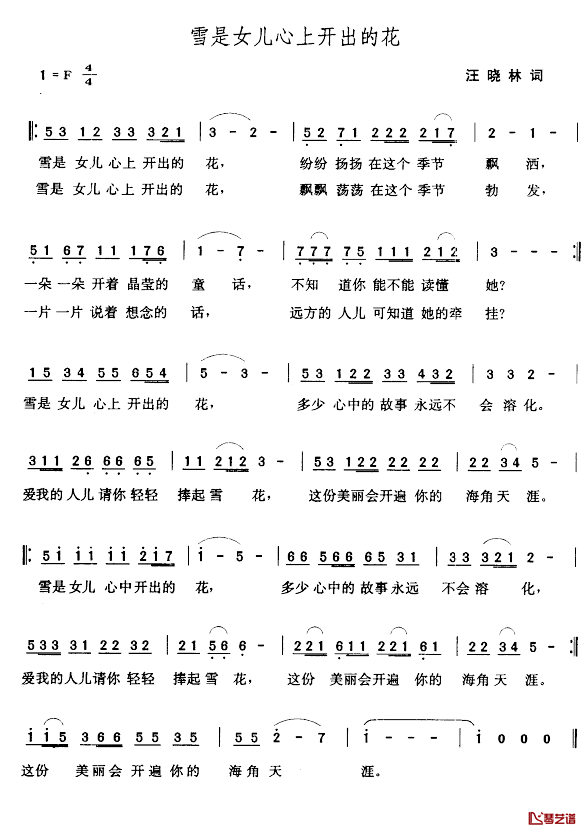 雪是女儿心上开出的花
1 = F 4/4 汪 晓 林 词
5 3 1 2 3 3 3 2 1 | 3 - 2 - | 5 2 7 1 2 2 2 2 1 7 | 2 - 1 - |
雪是 女儿 心上 开出的 花， 纷纷 扬扬 在这个 季节 飘 洒，
雪是 女儿 心上 开出的 花， 飘飘 荡荡 在这个 季节 勃 发，
5 1 6 7 1 1 1 7 6 | 1 - 7 - | 7 7 7 7 5 1 1 1 2 1 2 | 3 - - - :||
一朵 一朵 开着 晶莹的 童 话， 不知 道你 能不能 读懂 她？
一片 一片 说着 想念的 话， 远方的 人儿 可知道 她的牵 挂？
1 5 3 4 5 5 6 5 4 | 5 - 3 - | 5 3 1 2 2 3 3 4 3 2 | 3 3 2 - |
雪是 女儿 心上 开出的 花， 多少 心中的 故事 永远不 会 溶化。
3 1 1 2 6 6 6 6 5 | 1 1 2 1 2 3 - | 5 3 1 1 2 2 2 2 2 | 2 2 3 4 5 - |
爱我的 人儿 请你 轻轻 捧起 雪 花， 这份美丽会开遍 你的 海角 天 涯。
||: 5 i i i i i 2 i 7 | i - 5 - | 6 6 5 6 6 6 5 3 1 | 3 3 3 2 1 2 - |
雪是 女儿 心中 开出的 花， 多少 心中的 故事 永远 不会 溶 化，
5 3 3 3 1 2 2 3 2 | 2 1 5 6 6 - | 2 2 1 6 1 1 2 2 1 6 1 | 2 2 3 4 5 - :||
爱我的 人儿 请你 轻轻 捧起 雪 花， 这份 美丽会开遍 你的 海角 天 涯。
i i 5 3 6 6 5 5 3 5 | 5 5 2 - 7 | i - - - | i 0 0 0 ||
这份 美丽会 开遍 你的 海角 天 涯。
琴艺谱